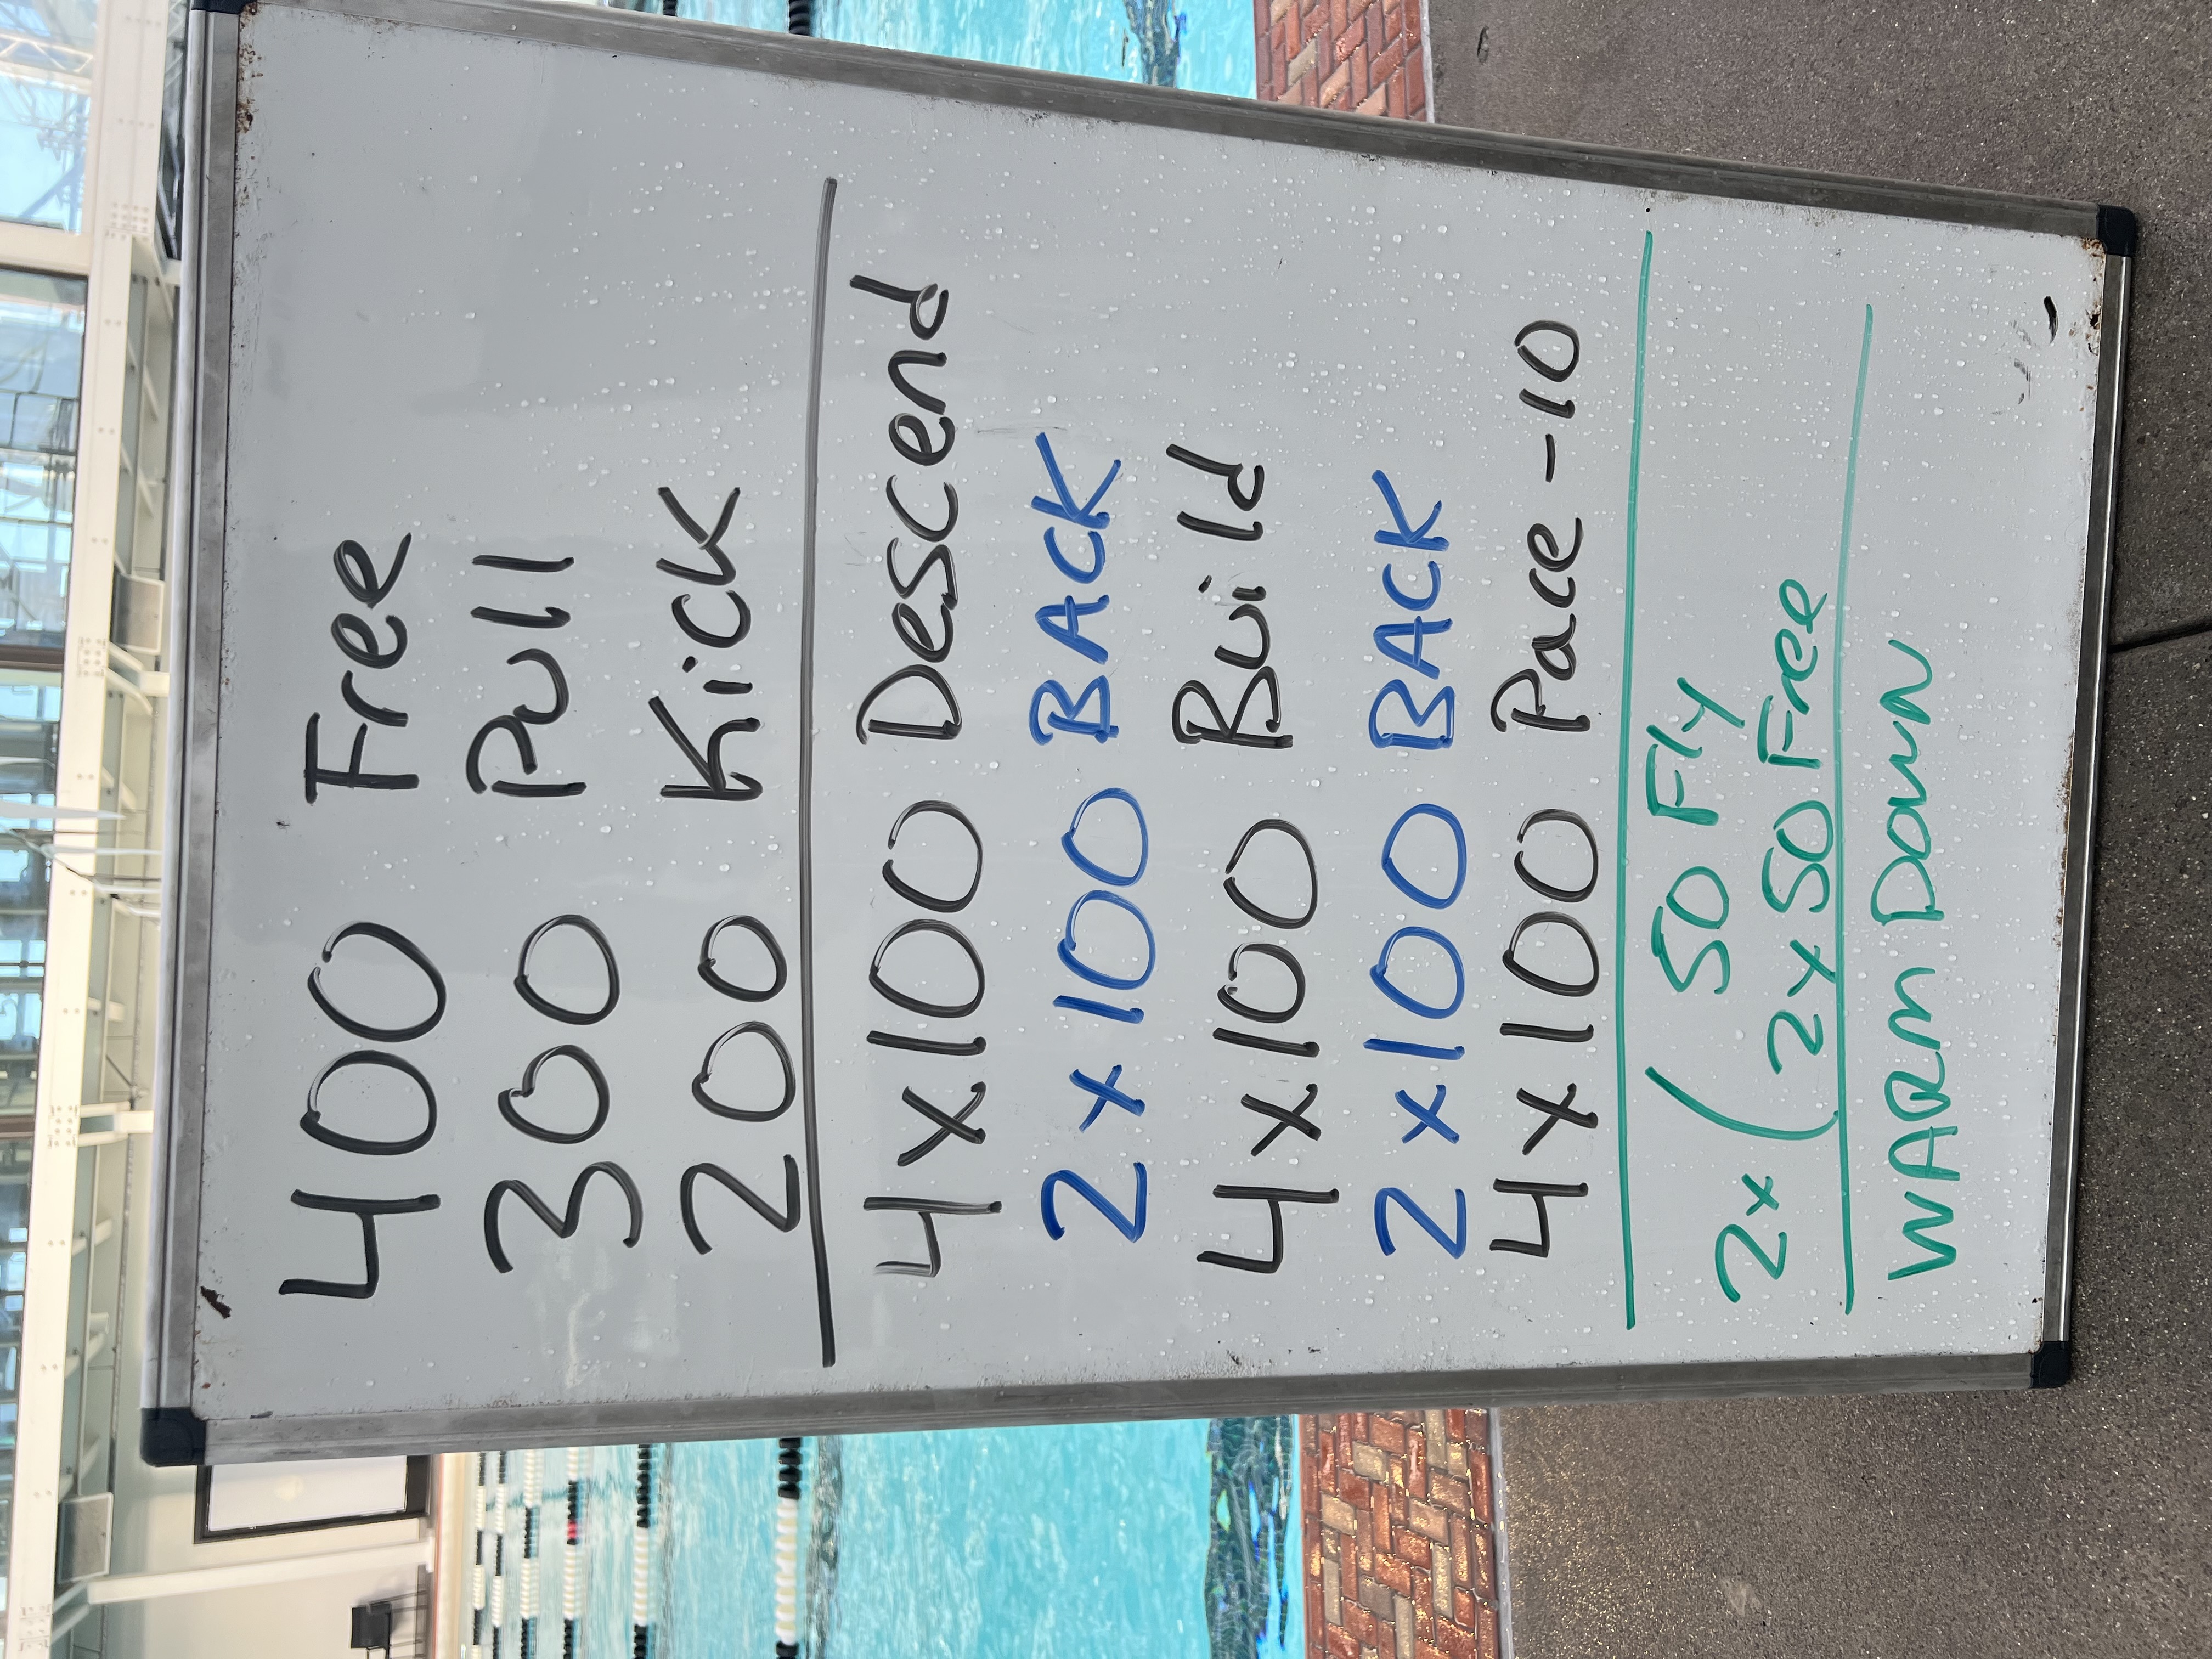 400 Free
300 Pull
200 Kick
4x100 Descend
2x100 BACK
4x100 Build
2x100 BACK
4x100 Pace -10
2x ( 50 Fly
2x50 Free
WARM DOWN